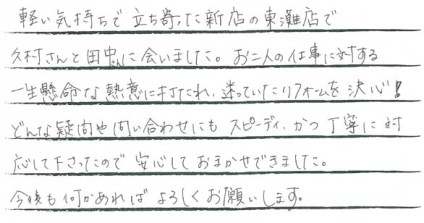 軽い気持ちで立ち寄った新店の東灘店で
久村さんと田中さんに会いました。お二人の仕事に対する
一生懸命な熱意に打たれ、迷っていたリフォームを決心!
どんな疑問や問い合わせにもスピーディ、かつ丁寧に対
応して下さったので安心しておまかせできました。
今後も何かあればよろしくお願いします。